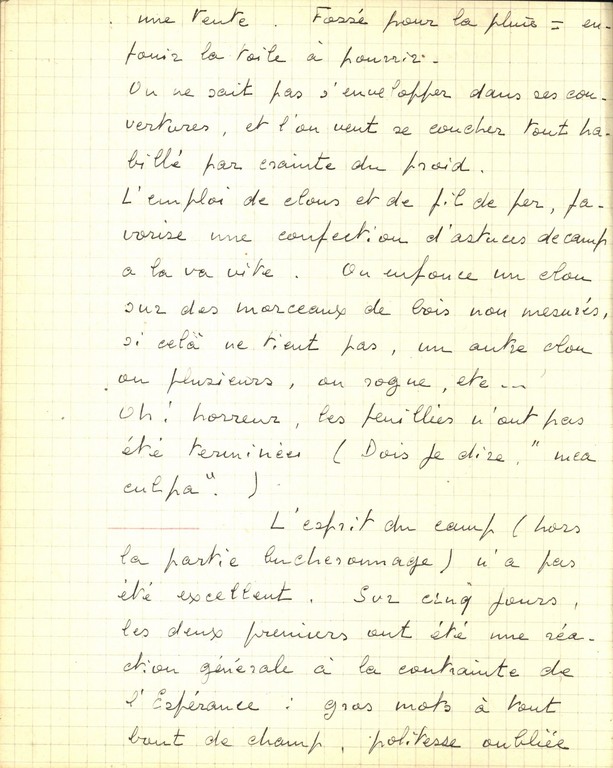 une tente. Fossé pour la pluie = en-
fouir la toile à pourrir.
On ne sait pas s'envelopper dans ses cou-
vertures, et l'on veut se coucher tout ha-
billé par crainte du froid.
L'emploi de clous et de fil de fer, fa-
vorise une confection d'astuces de camp
a la va vite. On enfonce un clou
sur des morceaux de bois non mesurés,
si celà ne tient pas, un autre clou
ou plusieurs, on rogne, etc...
Oh! horreur, les feuillées n'ont pas
été terminées (Dois je dire, "mea
culpa".)
L'esprit du camp (hors
la partie bucheronnage) n'a pas
été excellent. Sur cinq jours,
les deux premiers ont été une réa-
ction générale à la contrainte de
l'Espérance : gros mots à tout
bout de champ, politesse oubliée